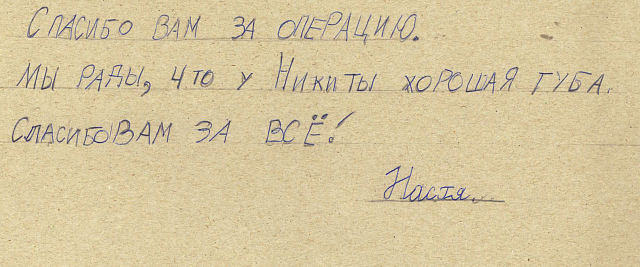 Спасибо вам за операцию.
Мы рады, что у Никиты хорошая губа.
Спасибо вам за всё!
Настя